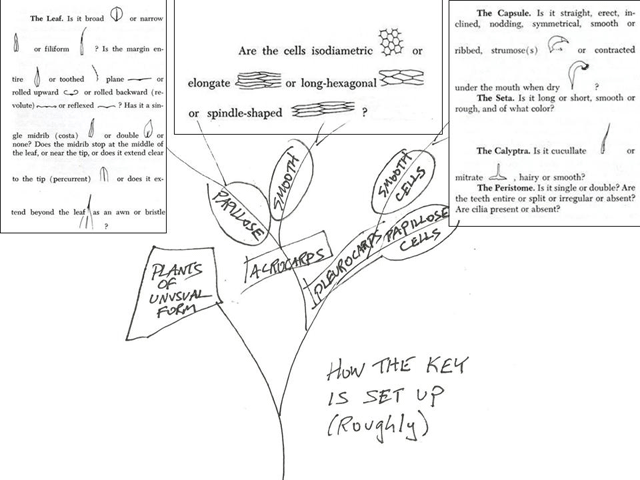 The Leaf. Is it broad or narrow
or filiform ? Is the margin en-
tire or toothed plane or
rolled upward or rolled backward (re-
volute) or reflexed ? Has it a sin-
gle midrib (costa) or double or
none? Does the midrib stop at the middle of
the leaf, or near the tip, or does it extend clear
to the tip (percurrent) or does it ex-
tend beyond the leaf as an awn or bristle
?
Are the cells isodiametric or
elongate or long-hexagonal
or spindle-shaped ?
The Capsule. Is it straight, erect, in-
clined, nodding, symmetrical, smooth or
ribbed, strumose(s) or contracted
under the mouth when dry ?
The Seta. Is it long or short, smooth or
rough, and of what color?
The Calyptra. Is it cucullate or
mitrate , hairy or smooth?
The Peristome. Is it single or double? Are
the teeth entire or split or irregular or absent?
Are cilia present or absent?
PAPILLOSE
SMOOTH
SMOOTH
CELLS
PLANTS
OF
UNUSUAL
FORM
ACROCARPS
PLEUROCARPS
PAPILLOSE
CELLS
HOW THE KEY
IS SET UP
(Roughly)